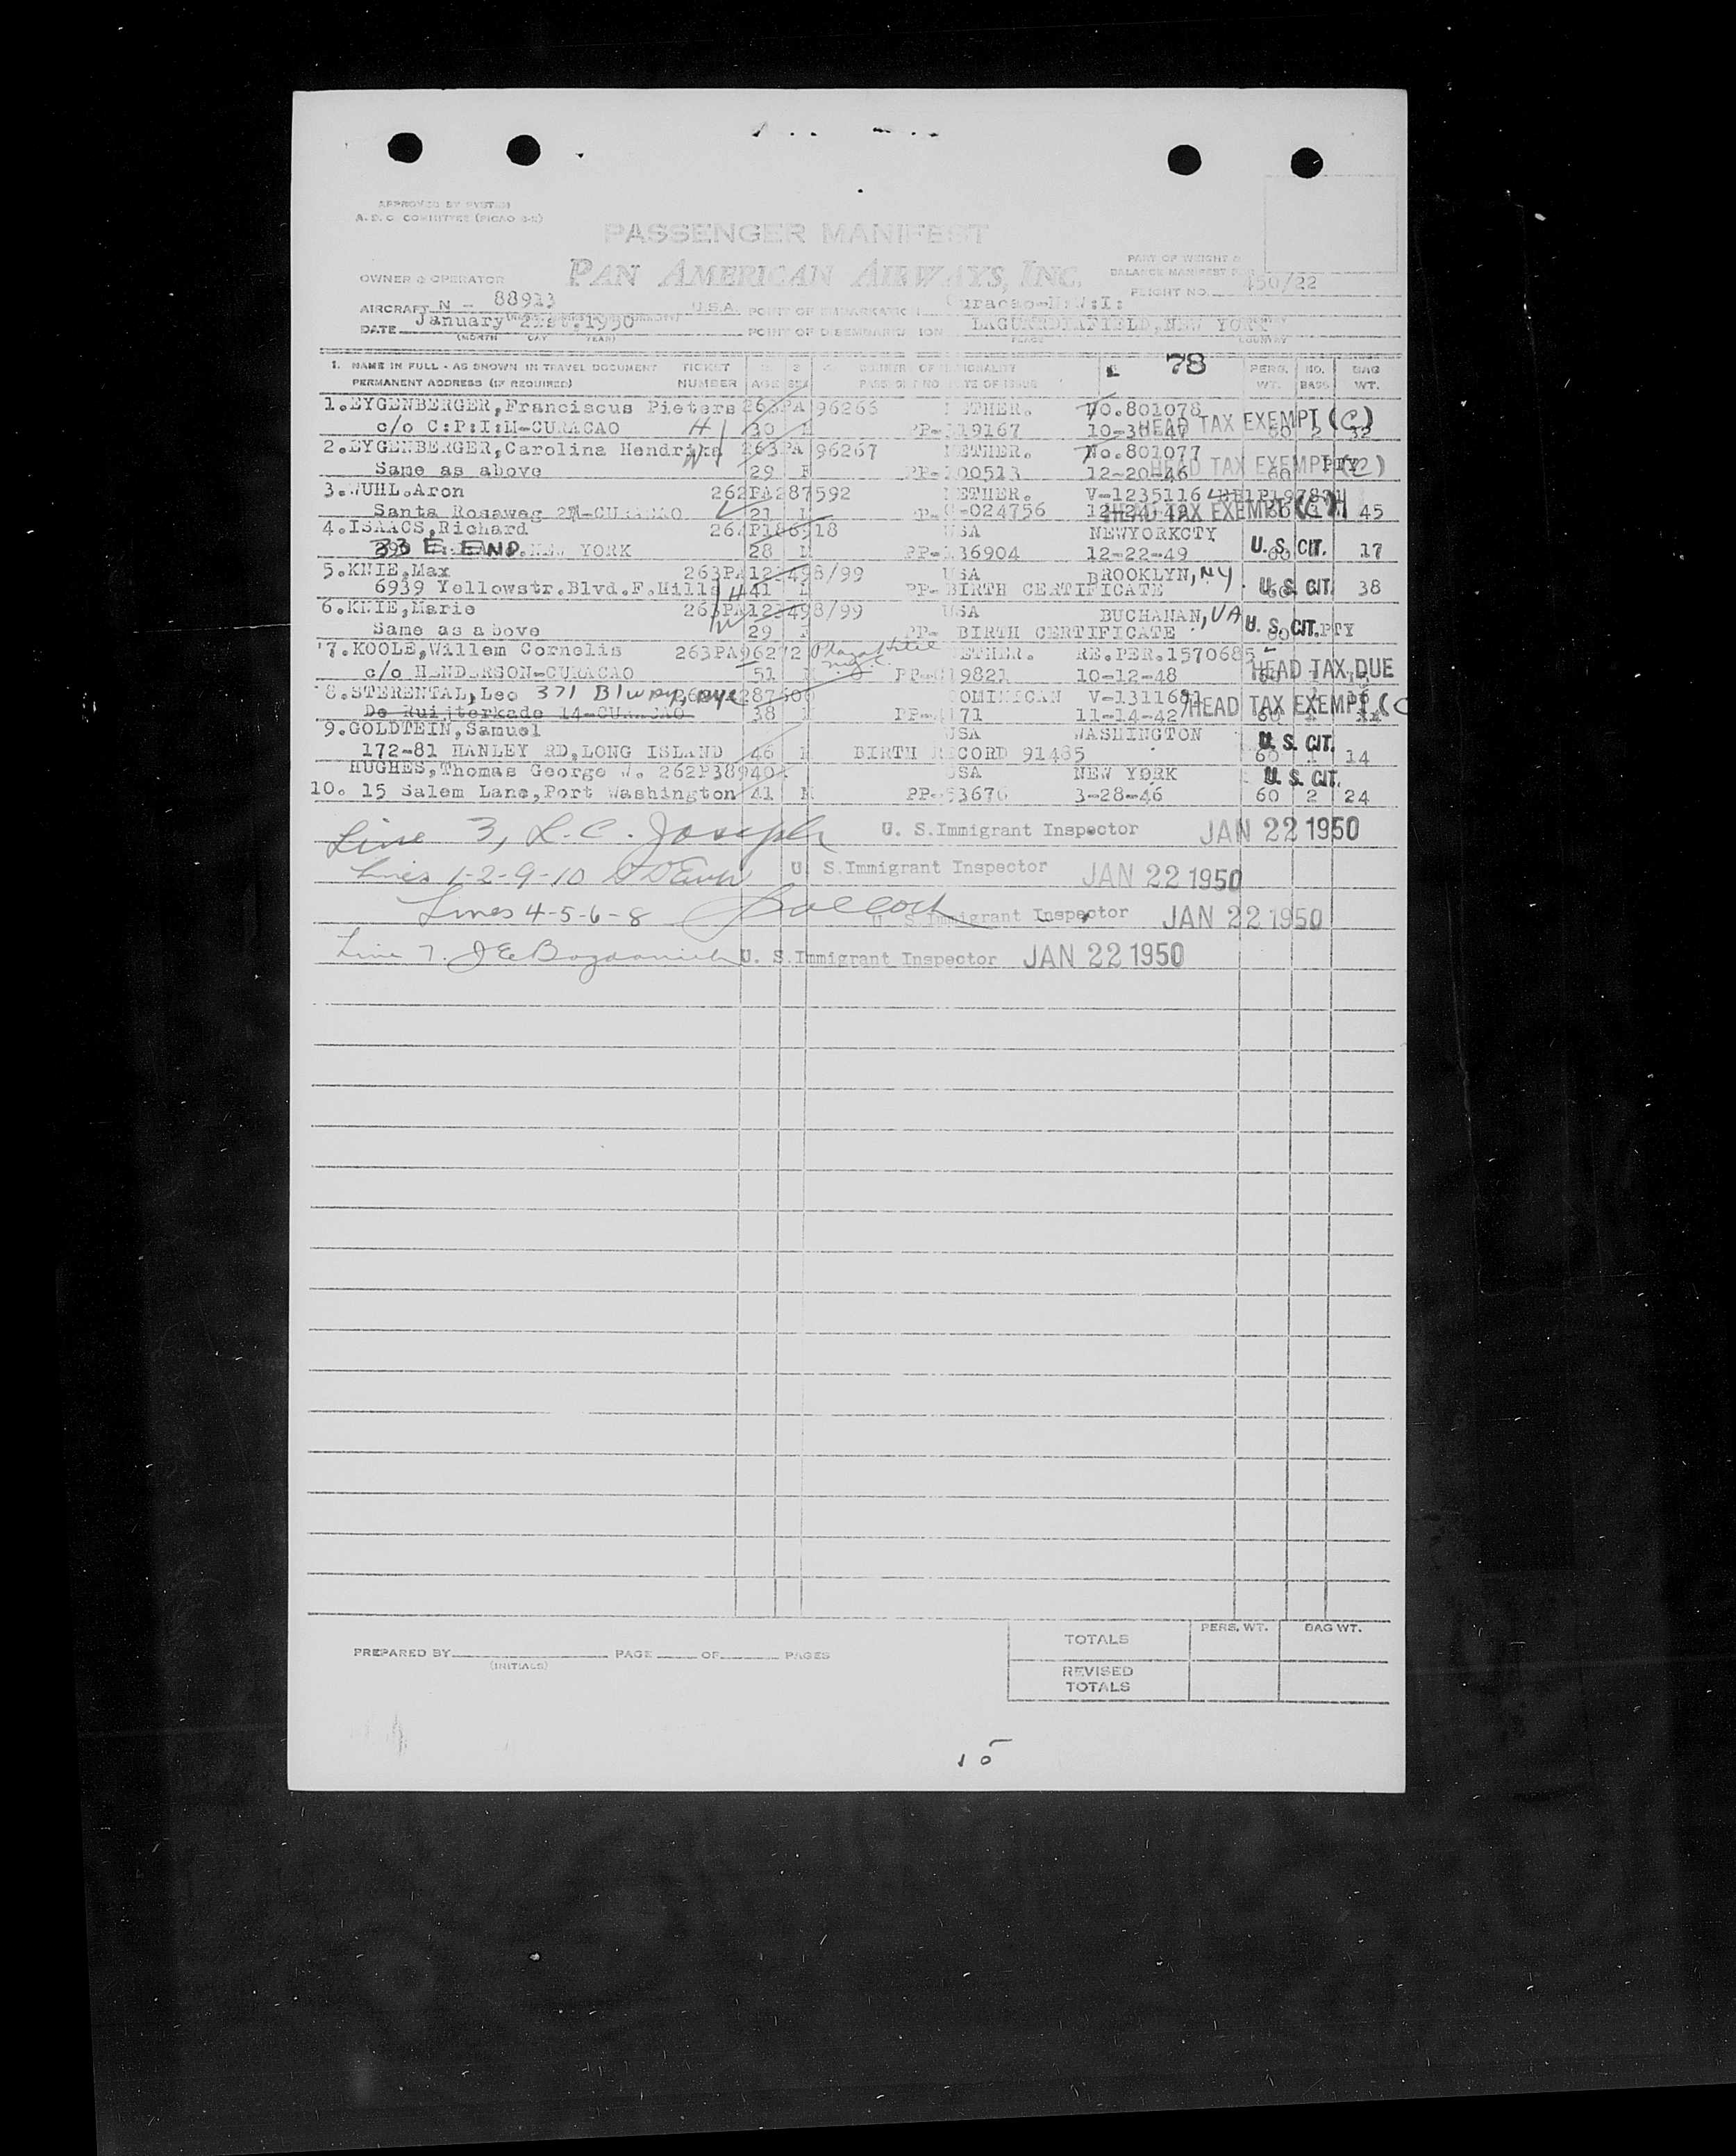 APPROVED BY SYSTEM
A.D.C. COMMITTEE (PICAO 3-2)
PASSENGER MANIFEST
PART OF WEIGHT &
BALANCE MANIFEST FOR
OWNER & OPERATOR PAN AMERICAN AIRWAYS, INC.
FLIGHT NO. 450/22
AIRCRAFT N - 88913 U.S.A. POINT OF EMBARKATION Curacao-N:W:I:
DATE January 21st. 1950 POINT OF DISEMBARKATION LAGUARDIAFIELD, NEW YORK
(MONTH DAY YEAR) PLACE COUNTRY
78
1. NAME IN FULL - AS SHOWN IN TRAVEL DOCUMENT TICKET NATIONALITY PERS. NO. BAG
PERMANENT ADDRESS (IF REQUIRED) NUMBER AGE SEX DATE OF ISSUE WT. BAGS WT.
1. EYGENBERGER, Franciscus Pieters 263PA 96266 NETHER. No. 801078
c/o C:P:I:M-CURACAO H 30 M PP-119167 10-30-47 HEAD TAX EXEMPT (C) 60 2 32
2. EYGENBERGER, Carolina Hendrika 263PA 96267 NETHER. No. 801077
Same as above W 29 F PP-200513 12-20-46 HEAD TAX EXEMPT (C) 60 PTY
3. WUHL. Aron 262PA287592 NETHER. V-1235116
Santa Rosaweg -CURACAO 21 M -024756 HEAD TAX EXEMPT 45
4. ISAACS, Richard USA NEWYORKCTY
33 E. END. NEW YORK 28 M PP-136904 12-22-49 U. S. CIT. 17
5. KNIE, Max 263PA 498/99 USA BROOKLYN, NY
6939 Yellowstr. Blvd. F. Hills H 41 M PP-BIRTH CERTIFICATE 60 U. S. CIT. 38
6. KNIE, Marie 263PA 498/99 USA BUCHANAN, VA
Same as above W 29 F PP- BIRTH CERTIFICATE 60 U. S. CIT. PTY
7. KOOLE, Willem Cornelis 263PA96272 Plaza Hotel NETHER. RE.PER.1570685
c/o HENDERSON-CURACAO 51 M NYC 9821 10-12-48 HEAD TAX DUE
8. STERENTAL, Leo 371 Blwpy, nyc DOMINICAN V-1311681
De Ruijterkade 14-CURACAO 38 M 11-14-42 HEAD TAX EXEMPT (C
9. GOLDTEIN, Samuel USA WASHINGTON
172-81 HANLEY RD, LONG ISLAND 46 M BIRTH RECORD 91485 U. S. CIT. 60 1 14
HUGHES, Thomas George W. 262P38940 USA NEW YORK U. S. CIT.
10. 15 Salem Lane, Port Washington 41 M PP-53676 3-28-46 60 2 24
Line 3, L.C. Joseph U. S. Immigrant Inspector JAN 22 1950
Lines 1-2-9-10 U. S. Immigrant Inspector JAN 22 1950
Lines 4-5-6-8 U. S. Immigrant Inspector JAN 22 1950
Line 7. U. S. Immigrant Inspector JAN 22 1950
PERS. WT. BAG WT.
TOTALS
PREPARED BY PAGE OF PAGES
(INITIALS)
REVISED
TOTALS
15